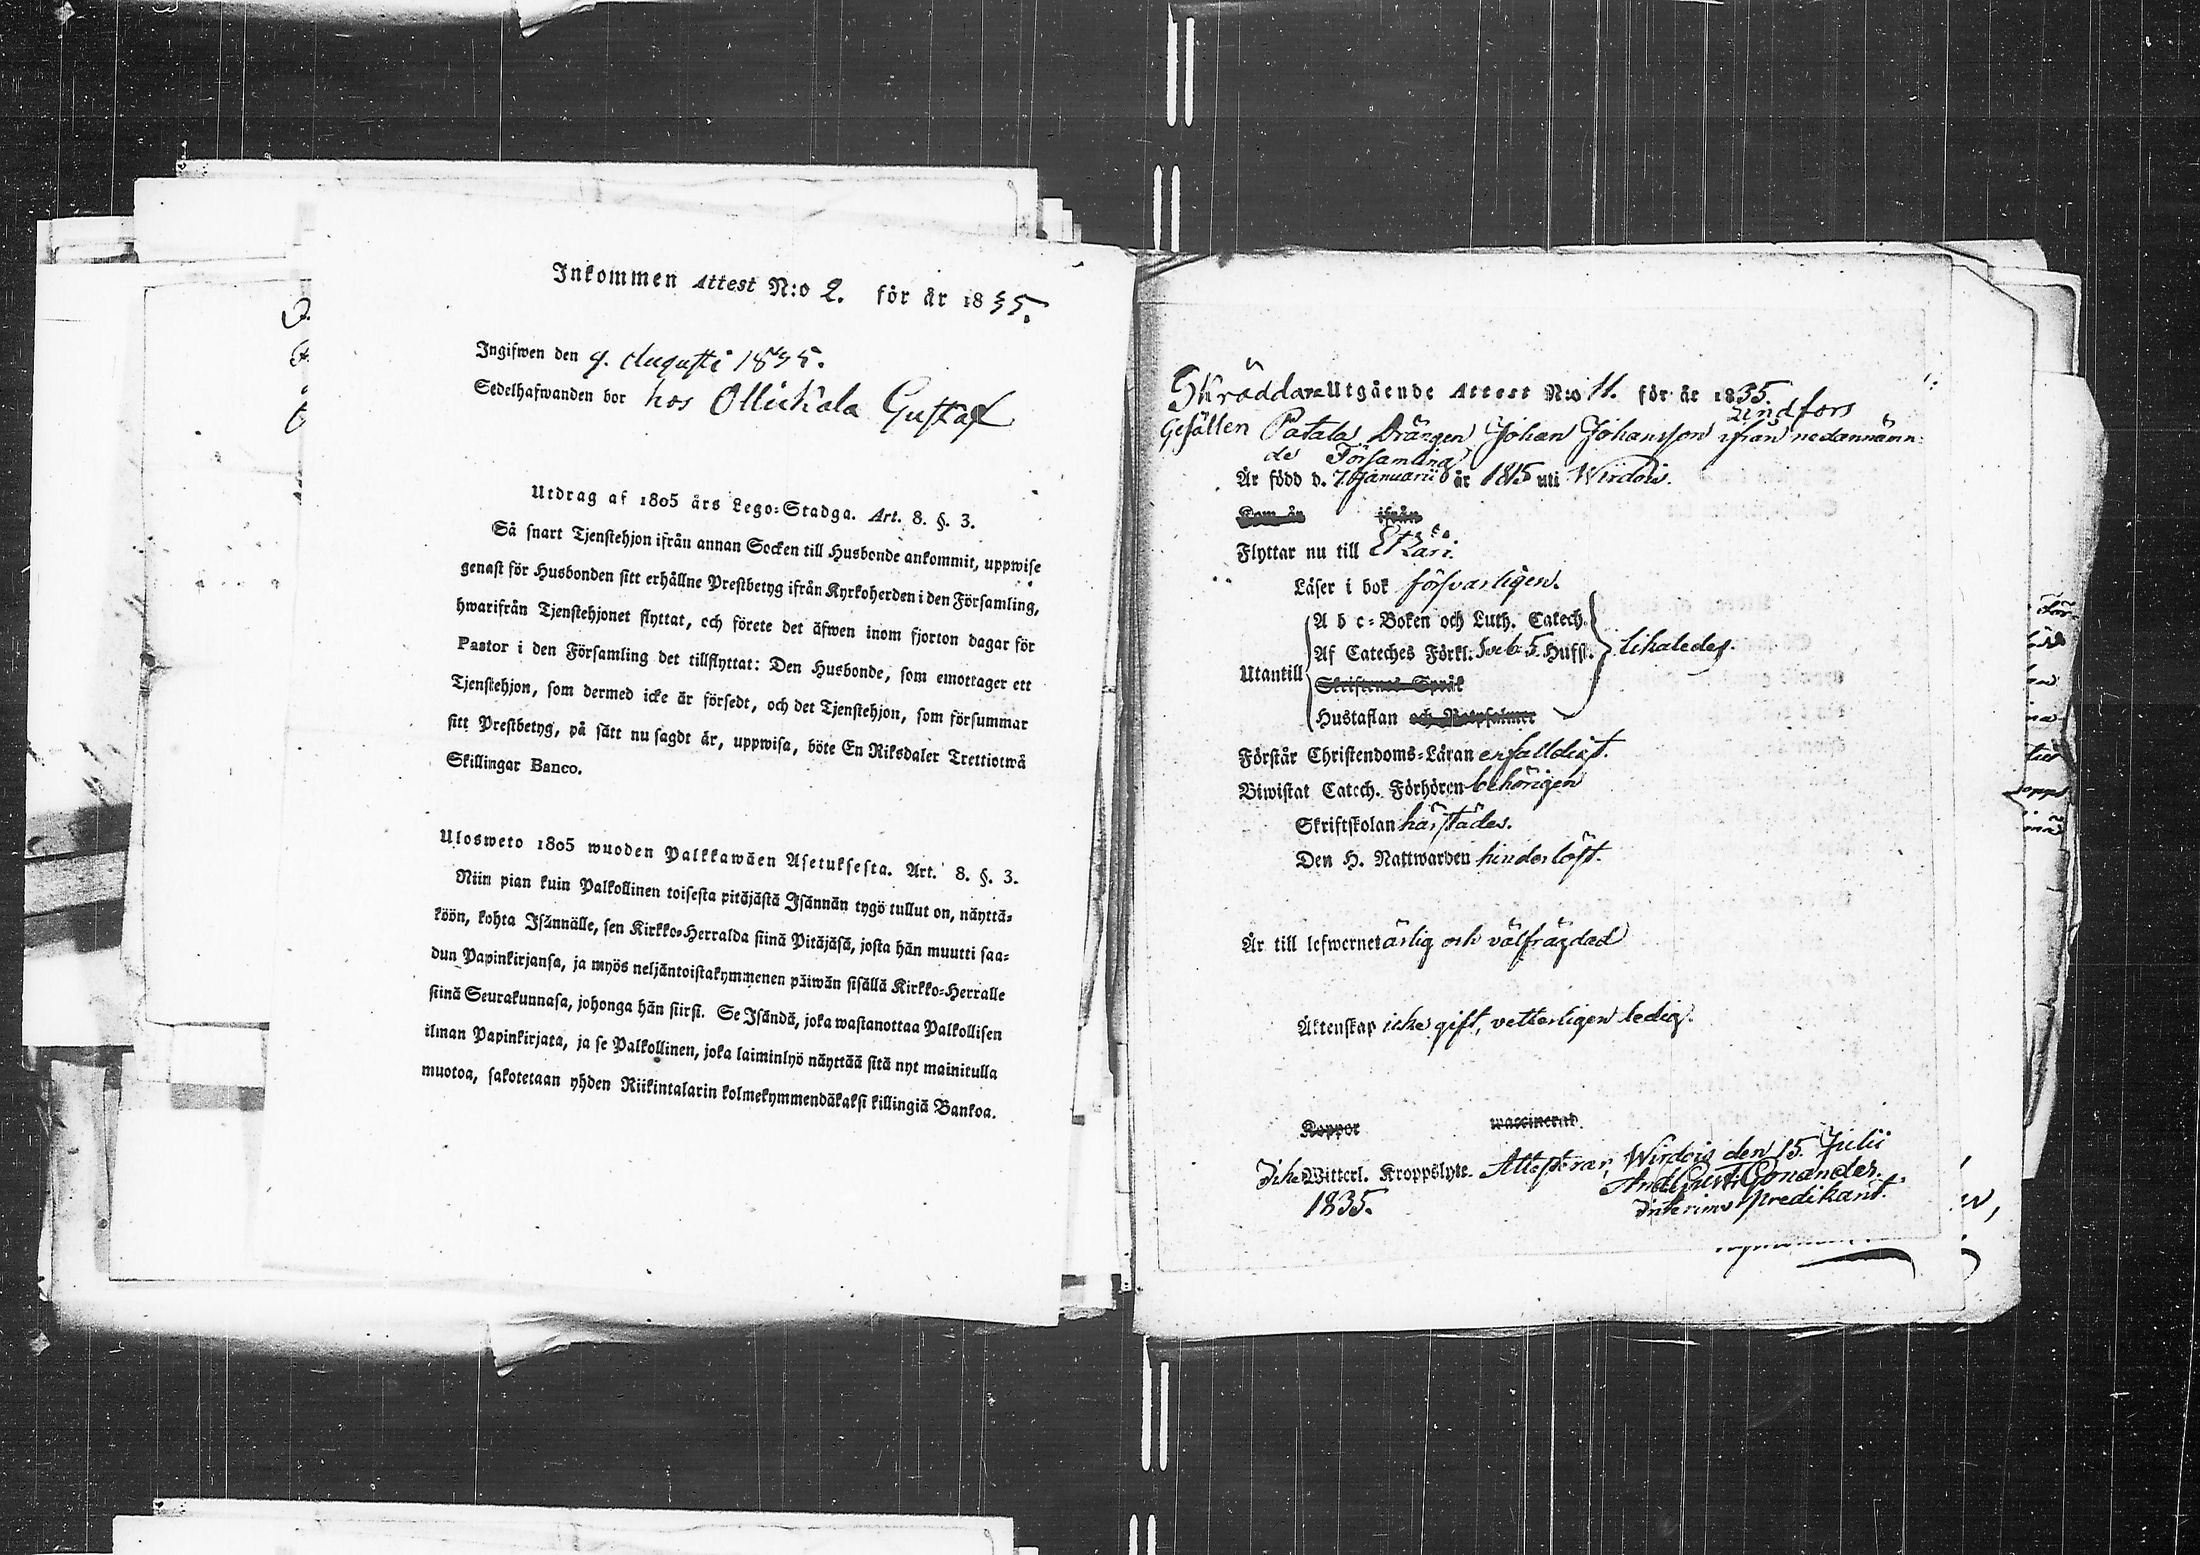 Inkommen Attest N:o 2. för år 1835.
Ingifwen den 9. Augusti 1835.
Sedelhafwanden bor hos Ollikala Gustaf
Utdrag af 1805 års Lego-Stadga. Art. 8. §. 3.
Så snart Tjenstehjon ifrån annan Socken till Husbonde ankommit, uppwise
genast för Husbonden sitt erhållne Prestbetyg ifrån Kyrkoherden i den Församling,
hwarifrån Tjenstehjonet flyttat, och förete det äfwen inom fjorton dagar för
Pastor i den Församling det tillflyttat: Den Husbonde, som emottager ett
Tjenstehjon, som dermed icke är försedt, och det Tjenstehjon, som försummar
sitt Prestbetyg, på sätt nu sagdt är, uppwisa, böte En Riksdaler Trettiotwå
Skillingar Banco.
Ulosweto 1805 wuoden Palkkawäen Asetuksesta. Art. 8. §. 3.
Niin pian kuin Palkollinen toisesta pitäjästä Isännän tygö tullut on, näyttä-
köön, kohta Isännälle, sen Kirkko-Herralda siinä Pitäjäsä, josta hän muutti saa-
dun Papinkirjansa, ja myös neljäntoistakymmenen päiwän sisällä Kirkko-Herralle
siinä Seurakunnasa, johonga hän siirsi. Se Isändä, joka wastanottaa Palkollisen
ilman Papinkirjata, ja se Palkollinen, joka laiminlyö näyttää sitä nyt mainitulla
muotoa, sakotetaan yhden Riikintalarin kolmekymmendäkaksi killingiä Bankoa.
Skräddare Utgående Attest N:o 11. för år 1835.
Lindfors
Gesällen Patala Drängen Johan Johansson ifrån nedannämn-
de Församling
År född d. 7 Januarii år 1815 uti Wirdois.
Kom år ifrån
Flyttar nu till Etzäri.
Läser i bok försvarligen.
A b c-Boken och Luth. Catech.
Af Cateches Förkl. Sveb. 5. Hufst. likaledes.
Utantill
Skriftenes Språk
Hustaflan och Botpsalmer
Förstår Christendoms-Läran enfalldigt.
Biwistat Catech. Förhören behörigen
Skriftskolan härstädes.
Den H. Nattwarden hinderlöst.
År till lefwernet ärlig och välfrägdad
Äktenskap icke gift, vetterligen ledig.
Koppor waccinerad.
Icke Witterl. Kroppslyte. Attesterar, Wirdois den 15. Julii
1835.
And. Gust. Gonander.
Interims Predikant.